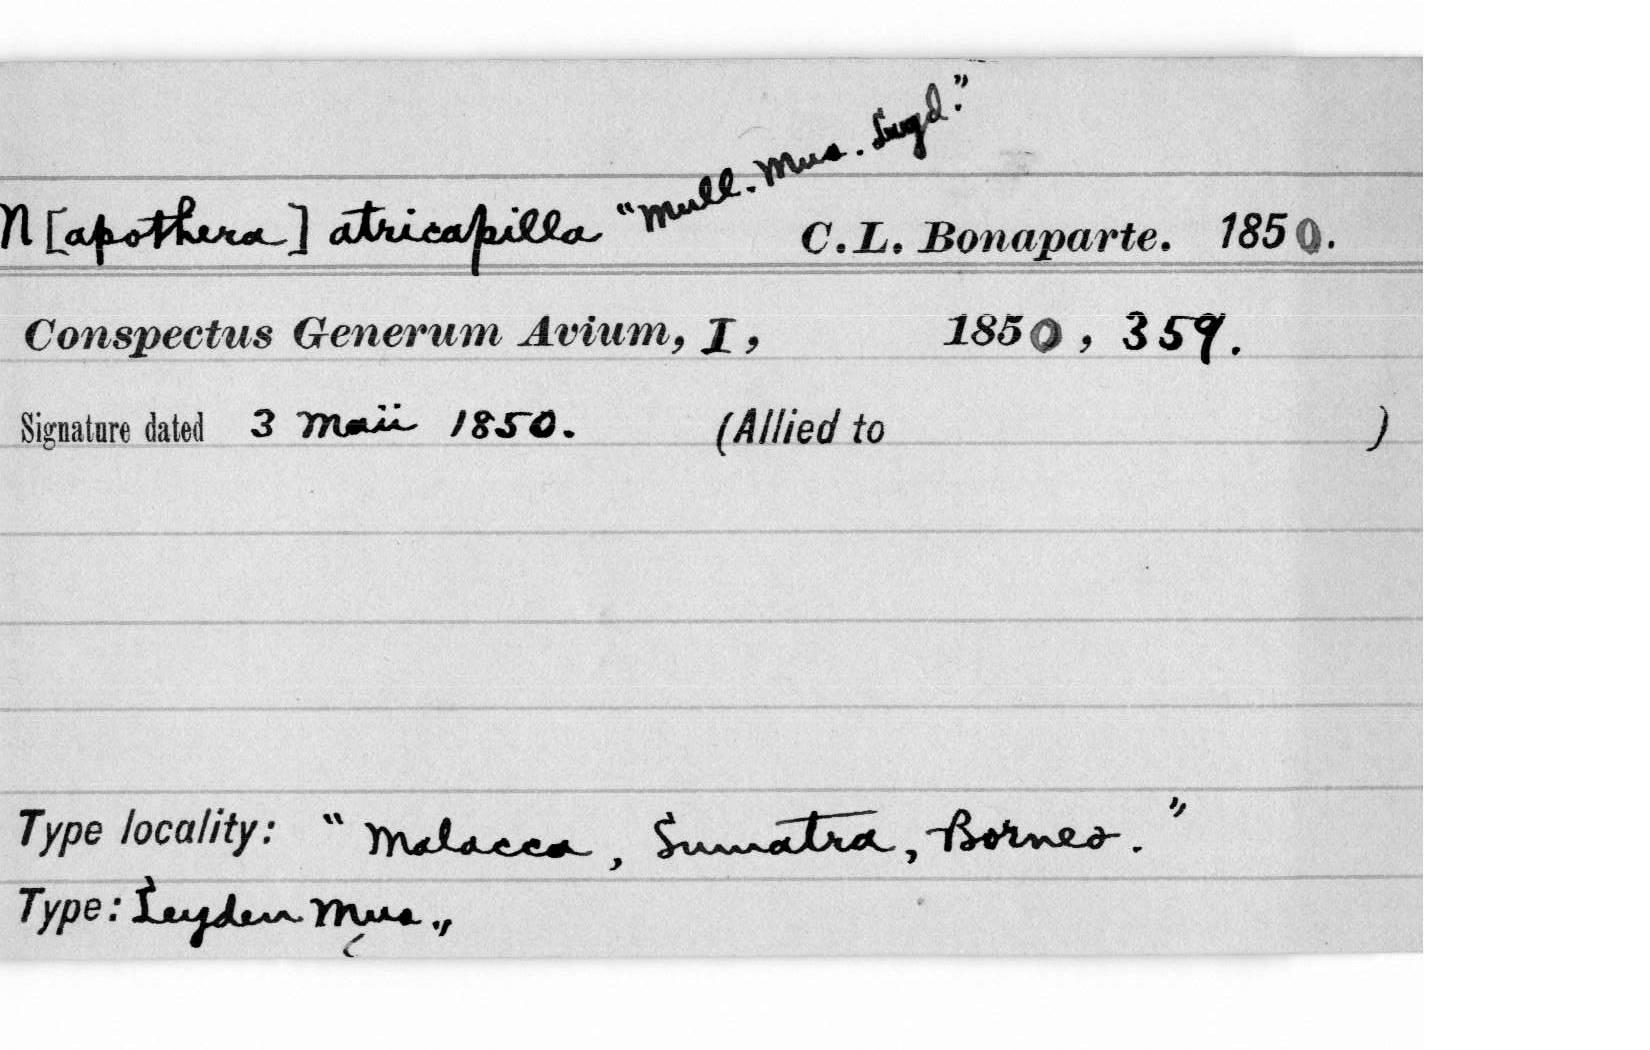 N[apothera] atricapilla "Mull. Mus. Lugd." C. L. Bonaparte. 1850.
Conspectus Generum Avium, I, 1850, 359.
Signature dated 3 Maii 1850. (Allied to )
Type locality: "Malacca, Sumatra, Borneo."
Type: Leyden Mus.,